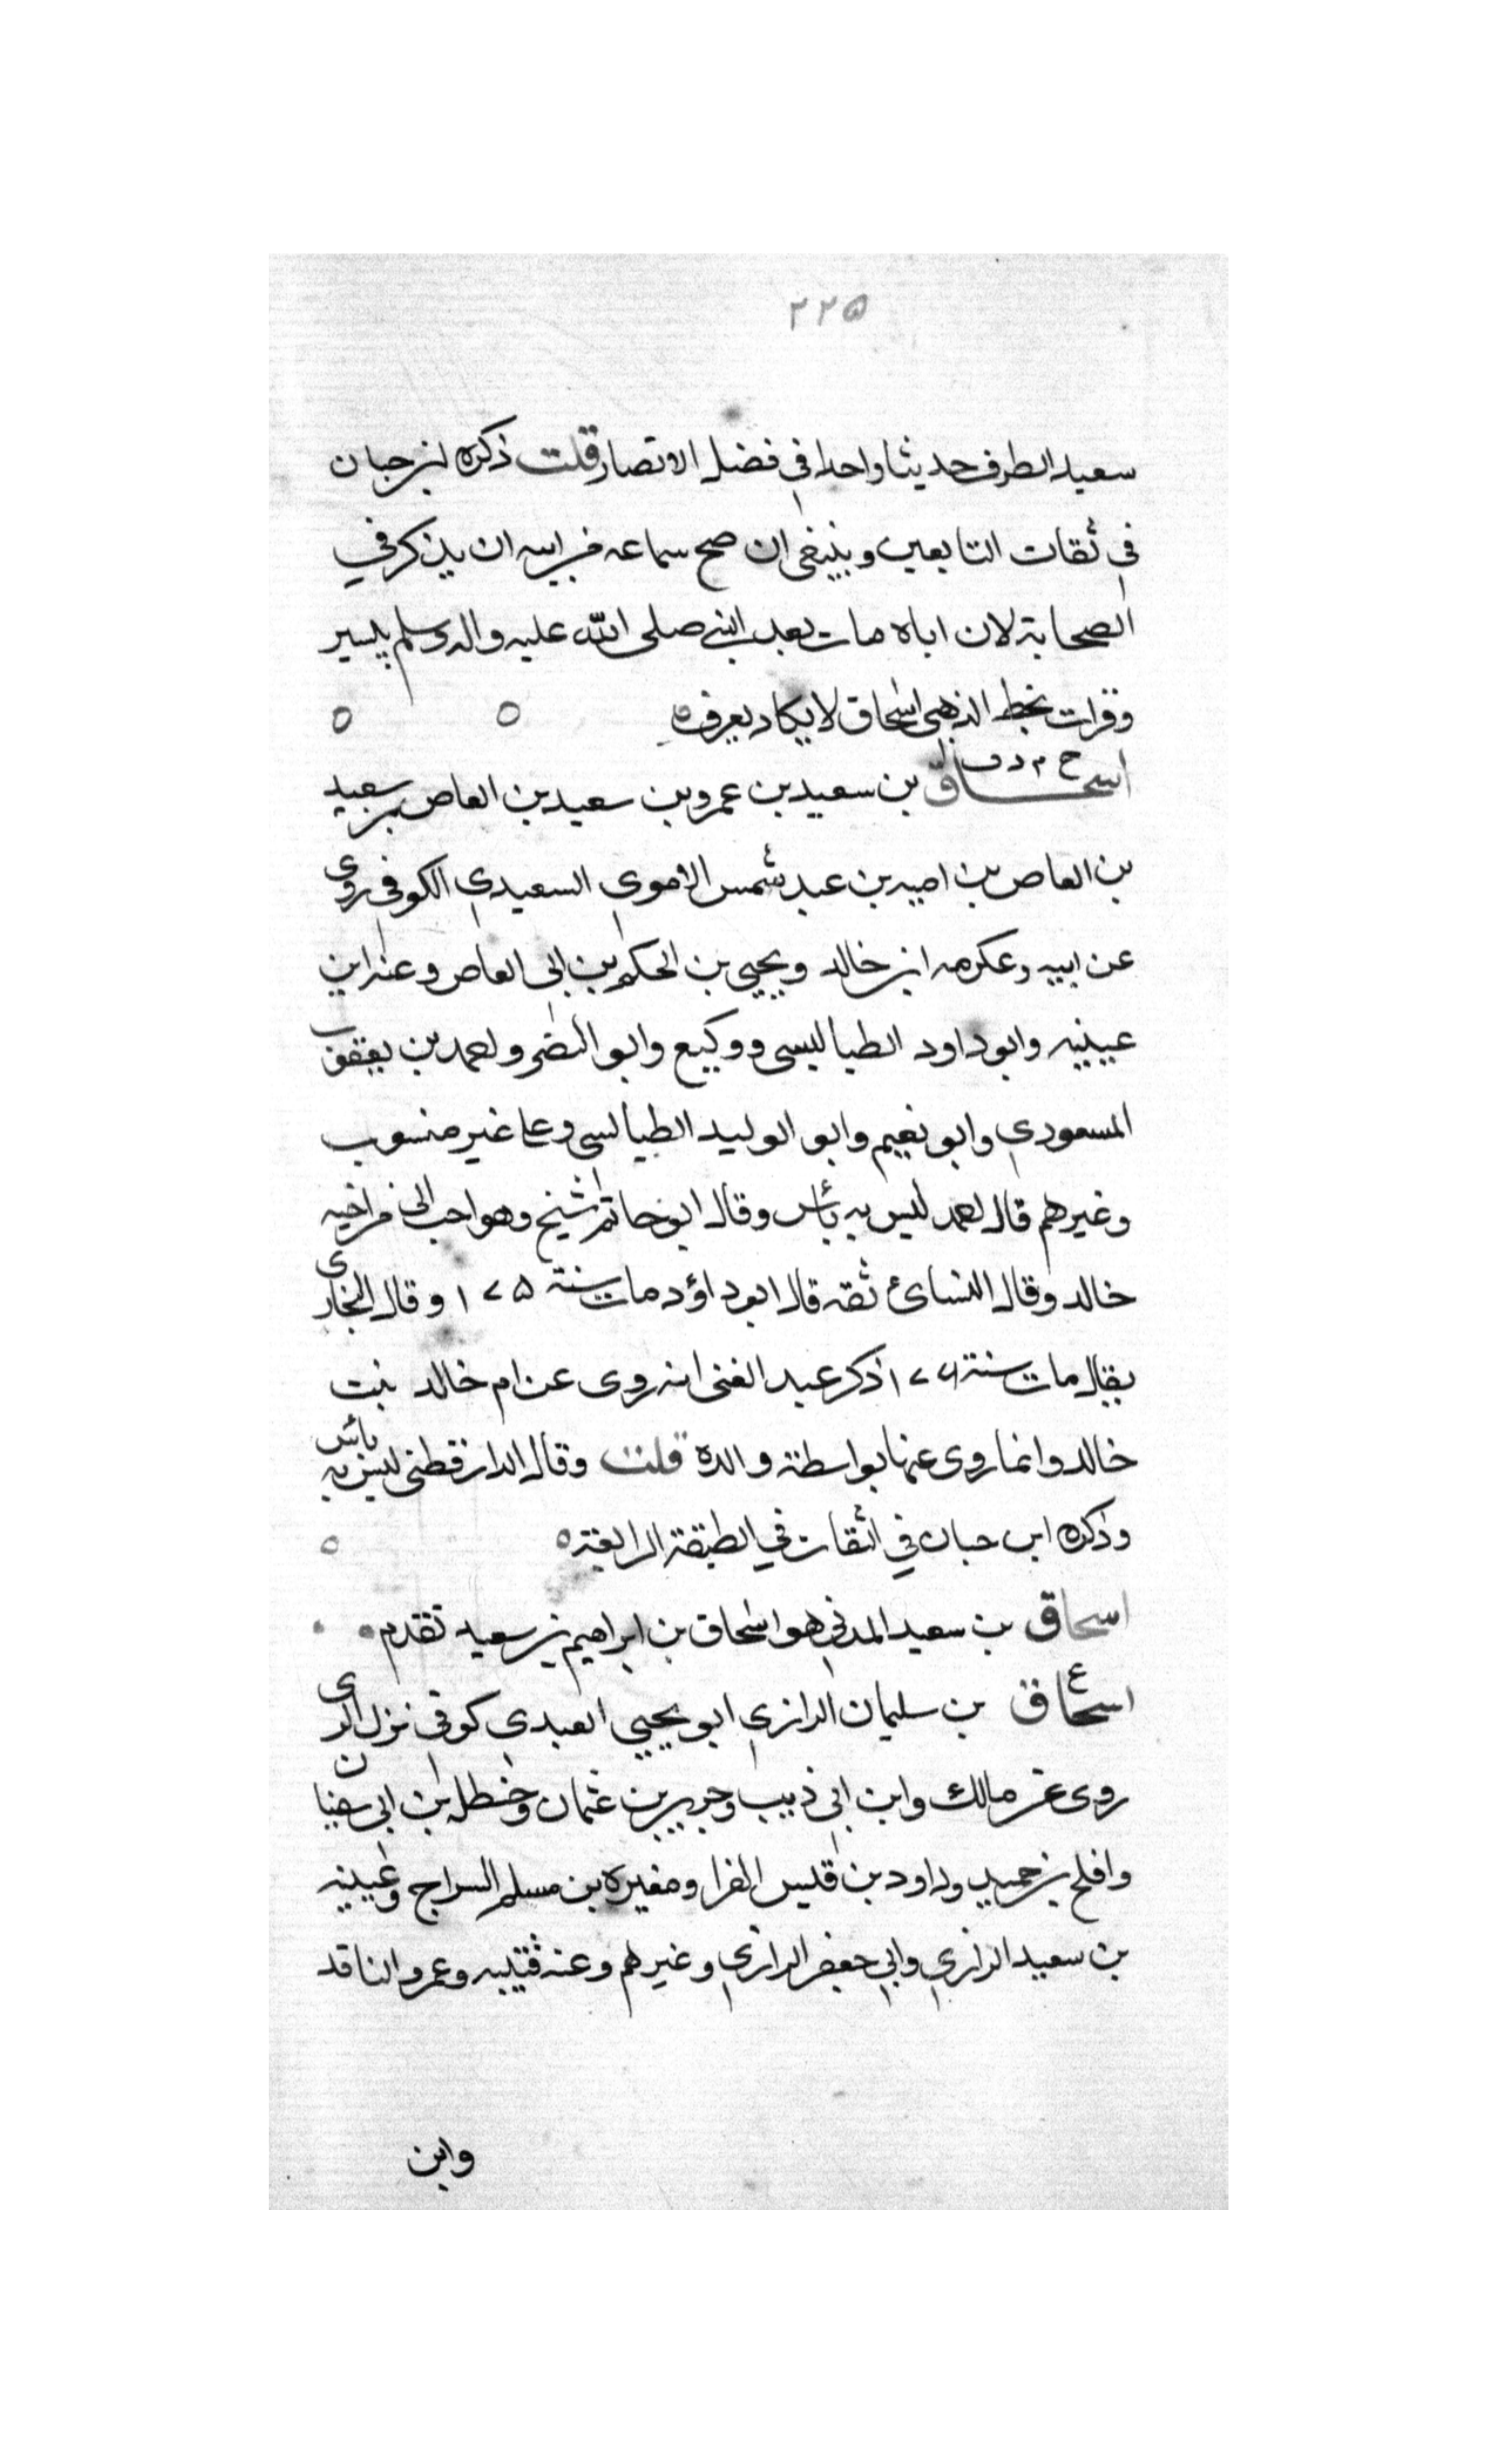 ٢٢٥
سعيد الطرف حديثا واحدا في فضل الانصار قلت ذكره ابن حبان
في ثقات التابعين وينبغي ان صح سماعه من ابيه ان يذكر في
الصحابة لان اباه مات بعد النبي صلى الله عليه واله وسلم بيسير
وقرات بخط الذهبي اسحاق لا يكاد يعرف ه ه ه
خ م د ق
اسحاق بن سعيد بن عمرو بن سعيد بن العاص بن سعيد
بن العاص بن اميه بن عبد شمس الاموي السعيدي الكوفي روى
عن ابيه وعكرمه ابن خالد ويحيي بن الحكم بن ابي العاص وعنه ابن
عيينه وابو داود الطيالسي ووكيع وابو النضر واحمد بن يعقوب
المسعودي وابو نعيم وابو الوليد الطيالسي وعلى غير منسوب
وغيرهم قال احمد ليس به بأس وقال ابو حاتم شيخ وهو احب الي من اخيه
خالد وقال النسائ ثقه قال ابو داؤد مات سنة ١٧٥ وقال البخاري
يقال مات سنة ١٧٦ ذكر عبد الغني انه روى عن ام خالد بنت
خالد وانما روى عنها بواسطة والده قلت وقال الدارقطني ليس به بأس
وذكره ابن حبان في الثقات في الطبقة الرابعة ه ه
اسحاق بن سعيد المدني هو اسحاق بن ابراهيم بن سعيد تقدم
ع
اسحاق بن سليمان الرازي ابو يحيي العبدي كوفي نزل الري
روى عن مالك وابن ابي ذيب وجرير بن عثمان وحنظله بن ابي سفيان
وافلح بن حميد وداود بن قيس الفرا ومغيره بن مسلم السراج وعيينه
بن سعيد الرازي وابي جعفر الرازي وغيرهم وعنه قتيبه وعمرو الناقد
وابن